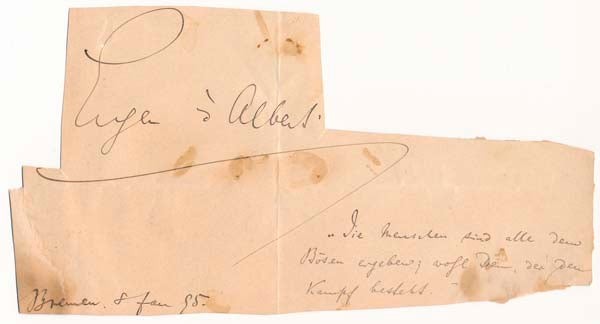 Eugen d'Albert.
„Die Menschen sind alle dem
Bösen ergeben; wohl Dem, der den
Kampf besteht.“
Bremen. 8 Jan 95.